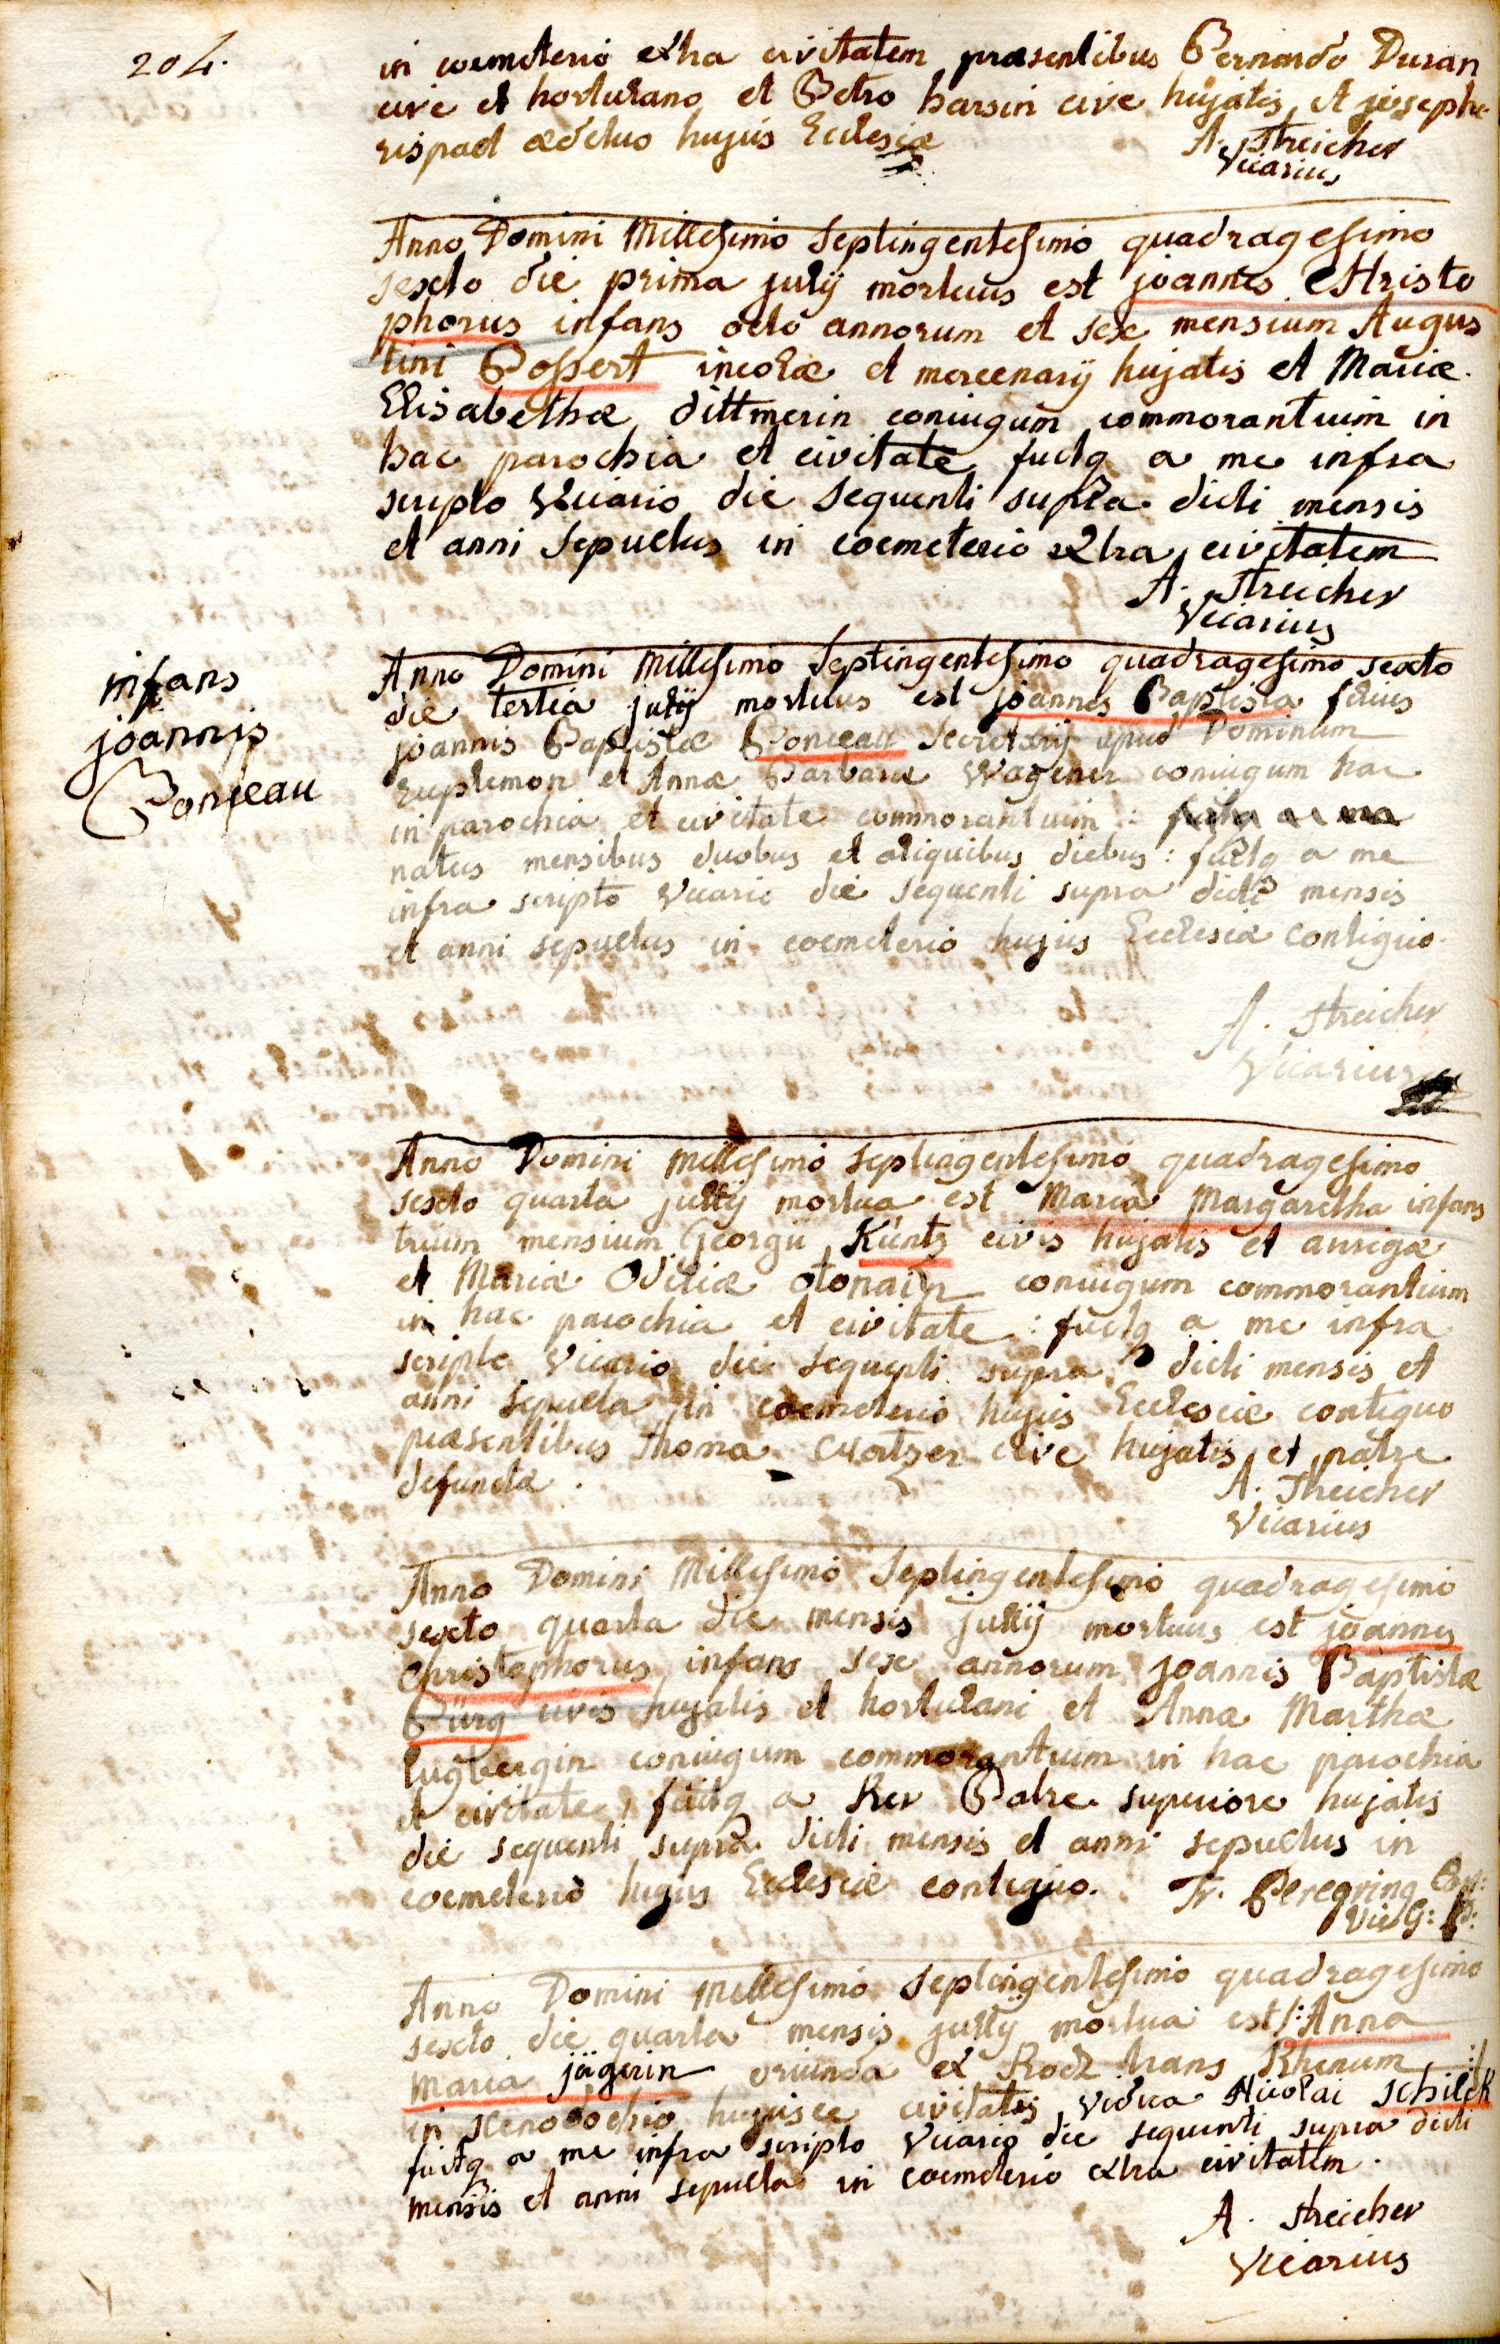 204.
in coemeterio extra civitatem præsentibus Bernardo Duran
cive et hortulano et Petro harsin cive hujatis et joseph
rispad ædituo hujus Ecclesiæ
A. Streicher
Vicarius
Anno Domini Millesimo Septingentesimo quadragesimo
sexto die prima julij mortuus est joannes Christo
phorus infans octo annorum et sex mensium Augus
tini Bossert incolæ et mercenarij hujatis et Mariæ
Elisabethæ dittmerin coniugum commorantium in
hac parochia et civitate fuitq a me infra
scripto Vicario die sequenti supra dicti mensis
et anni sepultus in coemeterio extra civitatem
A. Streicher
Vicarius
infans
joannis
Bonjeau
Anno Domini Millesimo Septingentesimo quadragesimo sexto
die tertia julij mortuus est joannes Baptista filius
joannis Baptistæ Bonjeau Secretarij apud Dominum
et Annæ Barbaræ Wagener coniugum hac
in parochia et civitate commorantium :
natus mensibus duobus et aliquibus diebus : fuitq a me
infra scripto Vicario die sequenti supra dicti mensis
et anni sepultus in coemeterio hujus Ecclesiæ contiguo.
A. Streicher
Vicarius
Anno Domini Millesimo Septingentesimo quadragesimo
sexto quarta julij mortua est Maria Margaretha infans
trium mensium Georgii Küntz civis hujatis et aurigæ
et Mariæ Odiliæ coniugum commorantium
in hac parochia et civitate : fuitq a me infra
scripto Vicario die sequenti supra dicti mensis et
anni sepulta in coemeterio hujus Ecclesiæ contiguo
præsentibus Thoma cive hujatis et patre
defunctæ.
A. Streicher
Vicarius
Anno Domini Millesimo Septingentesimo quadragesimo
sexto quarta die mensis julij mortuus est joannes
Christophorus infans sex annorum joannis Baptistæ
Bürg civis hujatis et hortulani et Annæ Marthæ
lugbergin coniugum commorantium in hac parochia
et civitate, fuitq a Rev Patre superiore hujatis
die sequenti supra dicti mensis et anni sepultus in
coemeterio hujus Ecclesiæ contiguo. Fr. Peregrinq Cap:
Vic G: P:
Anno Domini Millesimo Septingentesimo quadragesimo
sexto die quarta mensis julij mortua est /: Anna
Maria jägerin oriunda ex Rod trans Rhenum :/
in xenodochio hujusce civitatis vidua Nicolai Schilck
fuitq a me infra scripto Vicario die sequenti supra dicti
mensis et anni sepulta in coemeterio extra civitatem.
A. Streicher
Vicarius